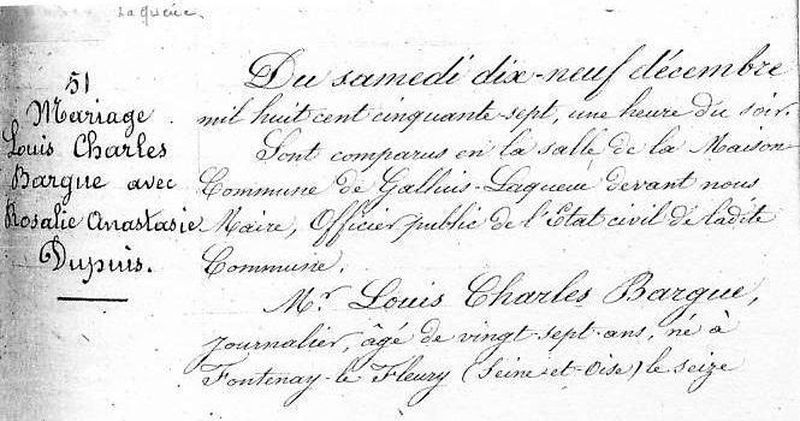 La Queue.
51
Mariage
Louis Charles
Bargue avec
Rosalie Anastasie
Dupuis.
Du samedi dix-neuf décembre
mil huit cent cinquante-sept, une heure du soir.
Sont comparus en la salle de la Maison
Commune de Galluis-Laqueue devant nous
Maire, Officier public de l'Etat civil de ladite
Commune.
Mr. Louis Charles Bargue,
journalier, âgé de vingt-sept ans, né à
Fontenay-le Fleury (Seine-et-Oise) le seize